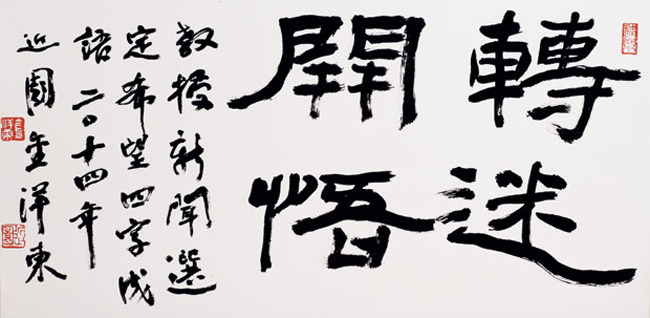 轉迷
開悟
教授新聞選
定希望四字成
語 二〇十四年
近園金洋東